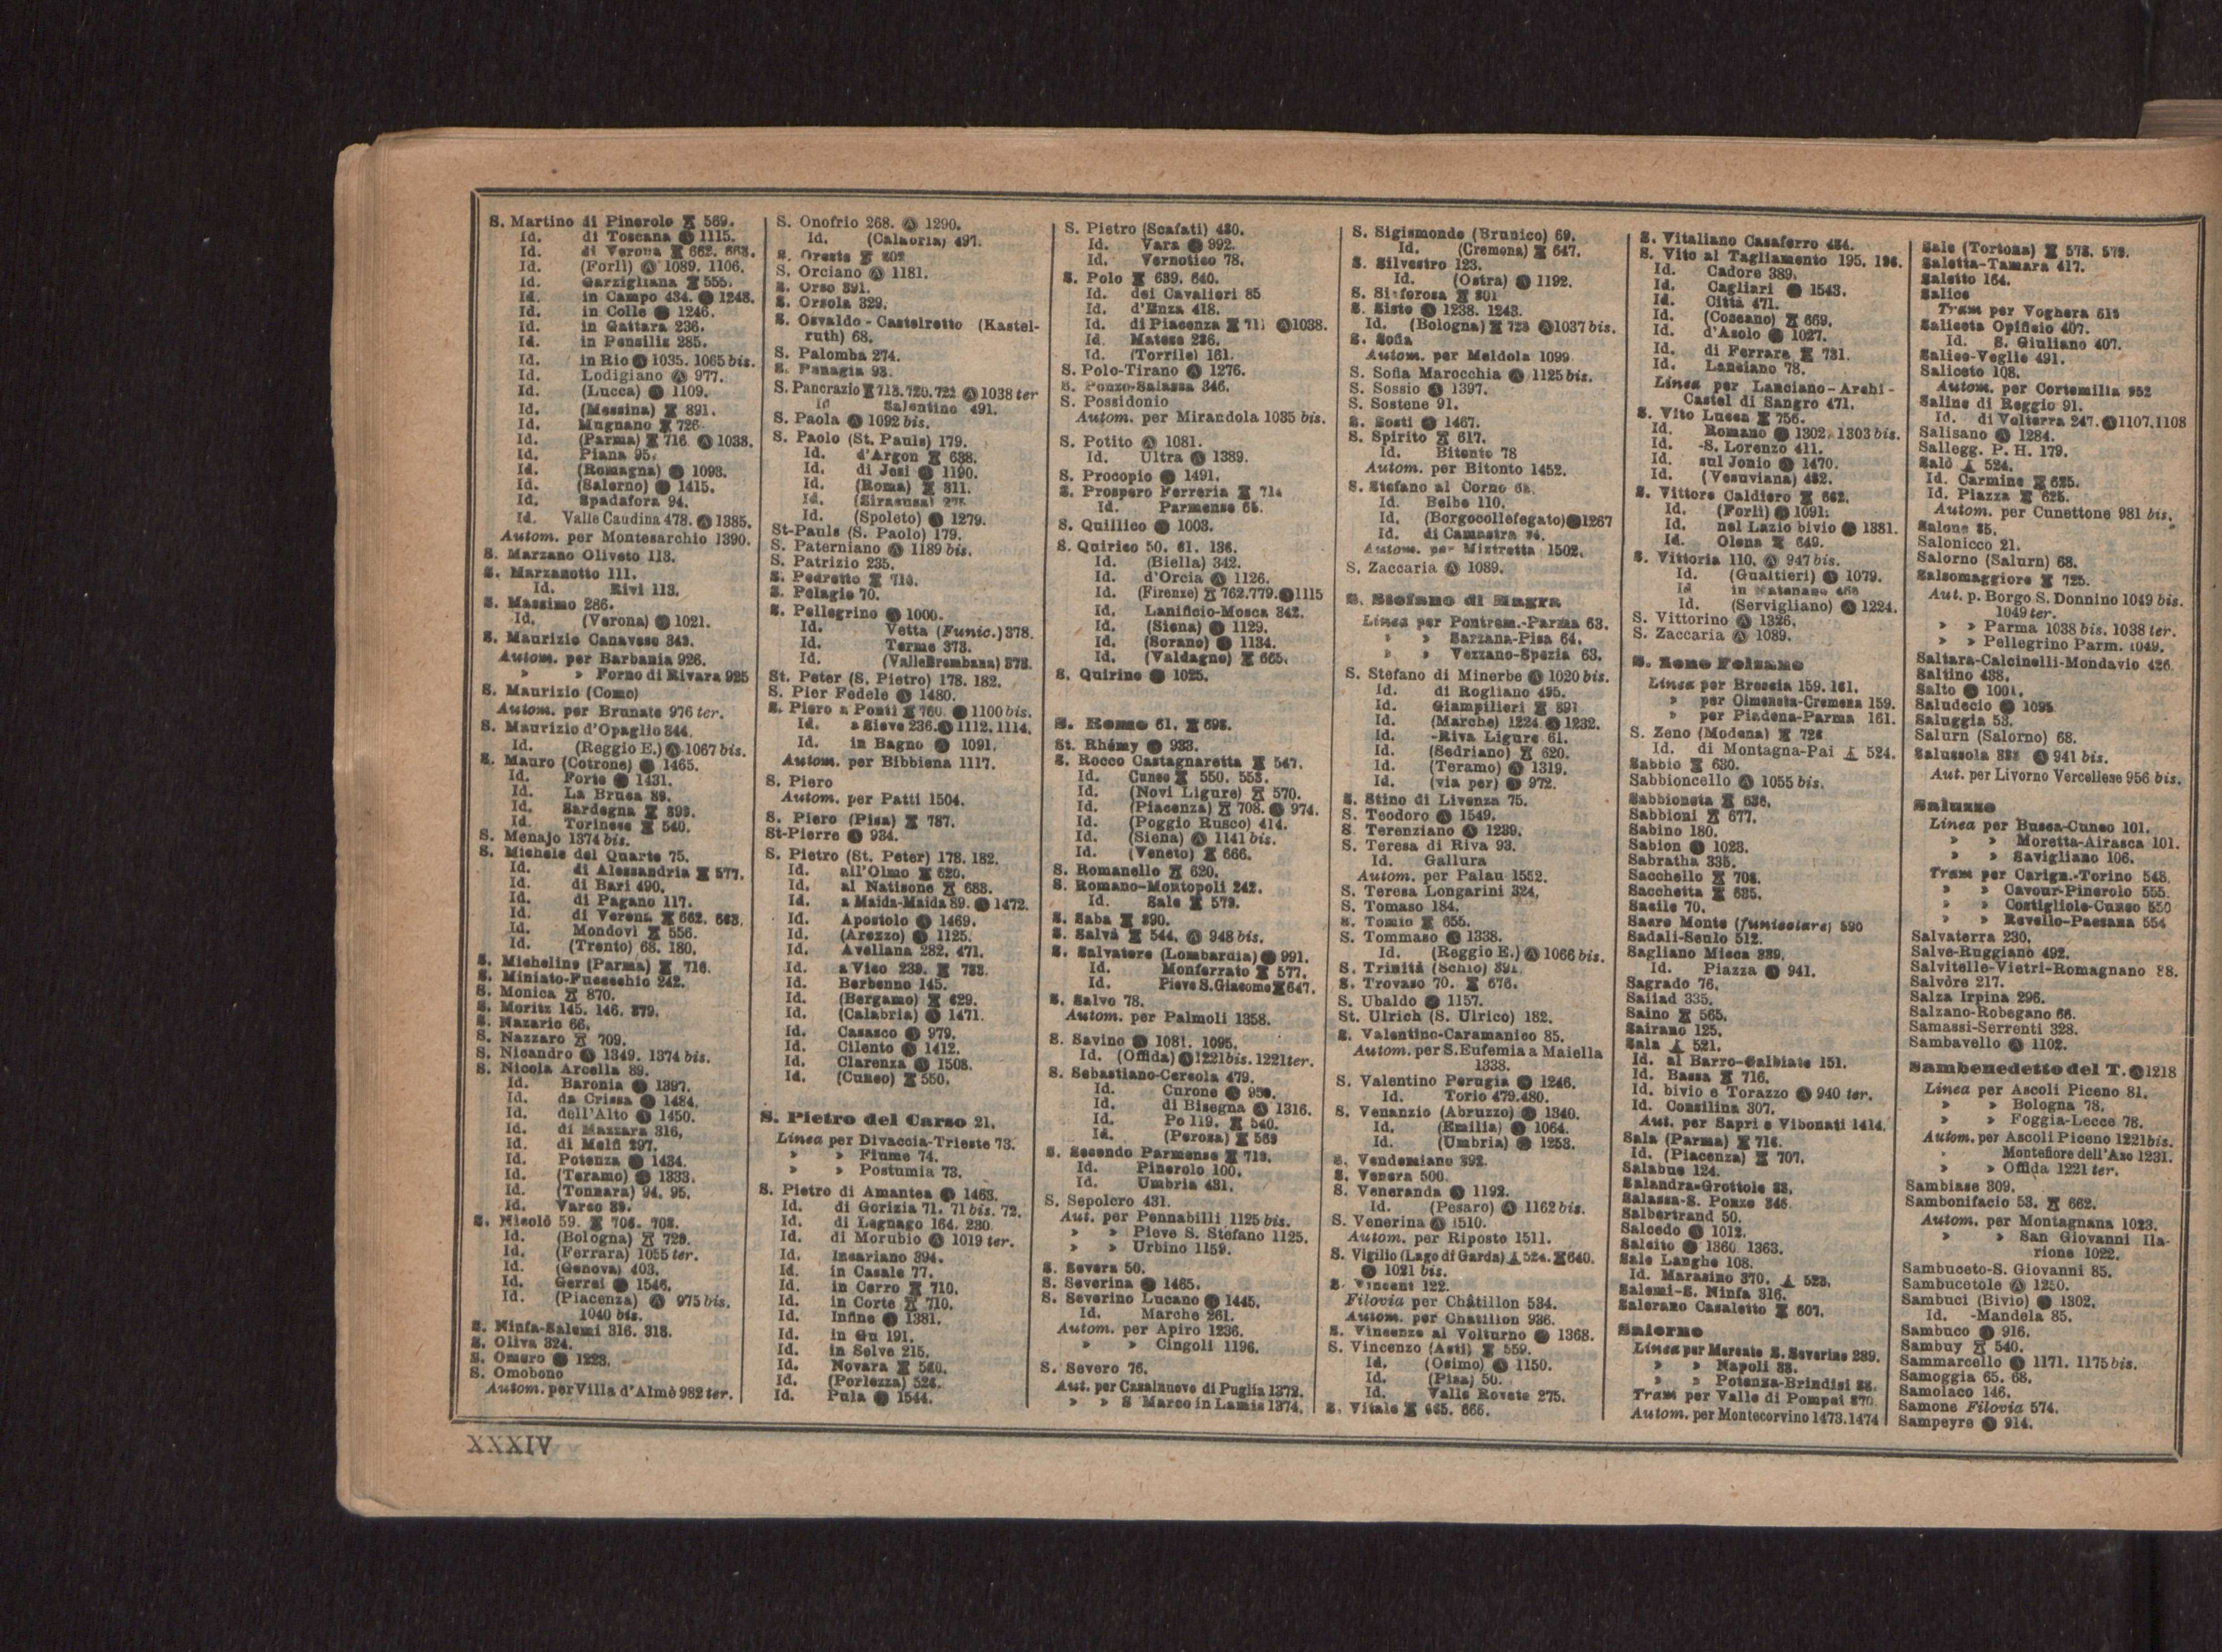 S. Martino di Pinerolo 569.
Id. di Toscana Ⓐ 1115.
Id. di Verona 662. 663.
Id. (Forlì) Ⓐ 1089. 1106.
Id. Garzigliana 555.
Id. in Campo 434. Ⓐ 1248.
Id. in Colle Ⓐ 1246.
Id. in Gattara 236.
Id. in Pensilis 285.
Id. in Rio Ⓐ 1035. 1065 bis.
Id. Lodigiano Ⓐ 977.
Id. (Lucca) Ⓐ 1109.
Id. (Messina) 891.
Id. Mugnano 726
Id. (Parma) 716. Ⓐ 1038.
Id. Piana 95.
Id. (Romagna) Ⓐ 1093.
Id. (Salerno) Ⓐ 1415.
Id. Spadafora 94.
Id. Valle Caudina 478. Ⓐ 1385.
Autom. per Montesarchio 1390.
S. Marzano Oliveto 113.
S. Marzanotto 111.
Id. Rivi 113.
S. Massimo 286.
Id. (Verona) Ⓐ 1021.
S. Maurizio Canavese 343.
Autom. per Barbania 926.
» » Forno di Rivara 925
S. Maurizio (Como)
Autom. per Brunate 976 ter.
S. Maurizio d'Opaglio 344.
Id. (Reggio E.) Ⓐ 1067 bis.
S. Mauro (Cotrone) Ⓐ 1465.
Id. Forte Ⓐ 1431.
Id. La Bruca 89.
Id. Sardegna 893.
Id. Torinese 540.
S. Menajo 1374 bis.
S. Michele del Quarto 75.
Id. di Alessandria 577.
Id. di Bari 490.
Id. di Pagano 117.
Id. di Verona 662. 663.
Id. Mondovì 556.
Id. (Trento) 68. 180.
S. Michelino (Parma) 716.
S. Miniato-Fucecchio 242.
S. Monica 870.
S. Moritz 145. 146. 379.
S. Nazario 66.
S. Nazzaro 709.
S. Nicandro Ⓐ 1349. 1374 bis.
S. Nicola Arcella 89.
Id. Baronia Ⓐ 1397.
Id. da Crissa Ⓐ 1484.
Id. dell'Alto Ⓐ 1450.
Id. di Mazzara 316,
Id. di Melfi 297.
Id. Potenza Ⓐ 1434.
Id. (Teramo) Ⓐ 1333.
Id. (Tonnara) 94. 95.
Id. Varco 89.
S. Nicolò 59. 706. 708.
Id. (Bologna) 729.
Id. (Ferrara) 1055 ter.
Id. (Genova) 403.
Id. Gerrei Ⓐ 1546.
Id. (Piacenza) Ⓐ 975 bis.
1040 bis.
S. Ninfa-Salemi 316. 318.
S. Oliva 324.
S. Omero Ⓐ 1223.
S. Omobono
Autom. per Villa d'Almè 982 ter.
S. Onofrio 268. Ⓐ 1290.
Id. (Calabria) 497.
S. Oreste 802
S. Orciano Ⓐ 1181.
S. Orso 391.
S. Orsola 329.
S. Osvaldo - Castelrotto (Kastel-
ruth) 68.
S. Palomba 274.
S. Panagia 93.
S. Pancrazio 713. 720. 722 Ⓐ 1038 ter
Id Salentino 491.
S. Paola Ⓐ 1092 bis.
S. Paolo (St. Pauls) 179.
Id. d'Argon 638.
Id. di Jesi Ⓐ 1190.
Id. (Roma) 811.
Id. (Siracusa) 275
Id. (Spoleto) Ⓐ 1279.
St-Pauls (S. Paolo) 179.
S. Paterniano Ⓐ 1189 bis.
S. Patrizio 235.
S. Pedretto 710.
S. Pelagio 70.
S. Pellegrino Ⓐ 1000.
Id. Vetta (Funic.) 378.
Id. Terme 373.
Id. (Valle Brembana) 373.
St. Peter (S. Pietro) 178. 182.
S. Pier Fedele Ⓐ 1480.
S. Piero a Ponti 760. Ⓐ 1100 bis.
Id. a Sieve 236. Ⓐ 1112. 1114.
Id. in Bagno Ⓐ 1091.
Autom. per Bibbiena 1117.
S. Piero
Autom. per Patti 1504.
S. Piero (Pisa) 787.
St-Pierre Ⓐ 934.
S. Pietro (St. Peter) 178. 182.
Id. all'Olmo 620.
Id. al Natisone 688.
Id. a Maida-Maida 89. Ⓐ 1472.
Id. Apostolo Ⓐ 1469.
Id. (Arezzo) Ⓐ 1125.
Id. Avellana 282. 471.
Id. a Vico 239. 788.
Id. Berbenno 145.
Id. (Bergamo) 629.
Id. (Calabria) Ⓐ 1471.
Id. Casasco Ⓐ 979.
Id. Cilento Ⓐ 1412.
Id. Clarenza Ⓐ 1508.
Id. (Cuneo) 550.
S. Pietro del Carso 21.
Linea per Divaccia-Trieste 73.
» » Fiume 74.
» » Postumia 73.
S. Pietro di Amantea Ⓐ 1463.
Id. di Gorizia 71. 71 bis. 72.
Id. di Legnago 164. 230.
Id. di Morubio Ⓐ 1019 ter.
Id. Incariano 394.
Id. in Casale 77.
Id. in Cerro 710.
Id. in Corte 710.
Id. Infine Ⓐ 1381.
Id. in Gu 191.
Id. in Selve 215.
Id. Novara 540.
Id. (Porlezza) 526.
Id. Pula Ⓐ 1544.
S. Pietro (Scafati) 480.
Id. Vara Ⓐ 992.
Id. Vernotico 78.
S. Polo 639. 640.
Id. dei Cavalieri 85
Id. d'Enza 418.
Id. di Piacenza 711 Ⓐ 1038.
Id. Matese 286.
Id. (Torrile) 161.
S. Polo-Tirano Ⓐ 1276.
S. Ponzo-Salassa 346.
S. Possidonio
Autom. per Mirandola 1035 bis.
S. Potito Ⓐ 1081.
Id. Ultra Ⓐ 1389.
S. Procopio Ⓐ 1491.
S. Prospero Ferreria 714
Id. Parmense 65.
S. Quillico Ⓐ 1003.
S. Quirico 50. 61. 136.
Id. (Biella) 342.
Id. d'Orcia Ⓐ 1126.
Id. (Firenze) 762. 779. Ⓐ 1115
Id. Lanificio-Mosca 342.
Id. (Siena) Ⓐ 1129.
Id. (Sorano) Ⓐ 1134.
Id. (Valdagno) 665.
S. Quirino Ⓐ 1025.
S. Remo 61. 698.
St. Rhémy Ⓐ 933.
S. Rocco Castagnaretta 547.
Id. Cuneo 550. 553.
Id. (Novi Ligure) 570.
Id. (Piacenza) 708. Ⓐ 974.
Id. (Poggio Rusco) 414.
Id. (Siena) Ⓐ 1141 bis.
Id. (Veneto) 666.
S. Romanello 620.
S. Romano-Montopoli 242.
Id. Sale 579.
S. Saba 890.
S. Salvà 544. Ⓐ 948 bis.
S. Salvatore (Lombardia) Ⓐ 991.
Id. Monferrato 577.
Id. Pieve S. Giacomo 647.
S. Salvo 78.
Autom. per Palmoli 1358.
S. Savino Ⓐ 1081. 1095.
Id. (Offida) Ⓐ 1221 bis. 1221 ter.
S. Sebastiano-Cercola 479.
Id. Curone Ⓐ 959.
Id. di Bisegna Ⓐ 1316.
Id. Po 119. 540.
Id. (Perosa) 569
S. Secondo Parmense 719.
Id. Pinerolo 100.
Id. Umbria 431.
S. Sepolcro 431.
Aut. per Pennabilli 1125 bis.
» » Pieve S. Stefano 1125.
» » Urbino 1159.
S. Severa 50.
S. Severina Ⓐ 1465.
S. Severino Lucano Ⓐ 1445.
Id. Marche 261.
Autom. per Apiro 1236.
» » Cingoli 1196.
S. Severo 76.
Aut. per Casalnuovo di Puglia 1372.
» » S Marco in Lamis 1374.
S. Sigismondo (Brunico) 69.
Id. (Cremona) 647.
S. Silvestro 123.
Id. (Ostra) Ⓐ 1192.
S. Sinforosa 801
S. Sisto Ⓐ 1238. 1243.
Id. (Bologna) 723 Ⓐ 1037 bis.
S. Sofia
Autom. per Meldola 1099
S. Sofia Marocchia Ⓐ 1125 bis.
S. Sossio Ⓐ 1397.
S. Sostene 91.
S. Sosti Ⓐ 1467.
S. Spirito 617.
Id. Bitonto 78
Autom. per Bitonto 1452.
S. Stefano al Corno 68.
Id. Belbo 110.
Id. (Borgocollefegato) Ⓐ 1267
Id. di Camastra 94.
Autom. per Mistretta 1502.
S. Zaccaria Ⓐ 1089.
S. Stefano di Magra
Linea per Pontrem.-Parma 63.
» » Sarzana-Pisa 64.
» » Vezzano-Spezia 63.
S. Stefano di Minerbe Ⓐ 1020 bis.
Id. di Rogliano 495.
Id. Giampilieri 891
Id. (Marche) 1224 Ⓐ 1232.
Id. -Riva Ligure 61.
Id. (Sedriano) 620.
Id. (Teramo) Ⓐ 1319.
Id. (via per) Ⓐ 972.
S. Stino di Livenza 75.
S. Teodoro Ⓐ 1549.
S. Terenziano Ⓐ 1239.
S. Teresa di Riva 93.
Id. Gallura
Autom. per Palau 1552.
S. Teresa Longarini 324.
S. Tomaso 184.
S. Tomio 655.
S. Tommaso Ⓐ 1338.
Id. (Reggio E.) Ⓐ 1066 bis.
S. Trinità (Schio) 391.
S. Trovaso 70. 676.
S. Ubaldo Ⓐ 1157.
St. Ulrich (S. Ulrico) 182.
S. Valentino-Caramanico 85.
Autom. per S. Eufemia a Maiella
1338.
S. Valentino Perugia Ⓐ 1246.
Id. Torio 479. 480.
S. Venanzio (Abruzzo) Ⓐ 1340.
Id. (Emilia) Ⓐ 1064.
Id. (Umbria) Ⓐ 1253.
S. Vendemiano 392.
S. Venera 500.
S. Veneranda Ⓐ 1192.
Id. (Pesaro) Ⓐ 1162 bis.
S. Venerina Ⓐ 1510.
Autom. per Riposto 1511.
S. Vigilio (Lago di Garda) 524. 640.
Ⓐ 1021 bis.
S. Vincent 122.
Filovia per Châtillon 534.
Autom. per Chatillon 936.
S. Vincenzo al Volturno Ⓐ 1368.
S. Vincenzo (Asti) 559.
Id. (Osimo) Ⓐ 1150.
Id. (Pisa) 50.
Id. Valle Roveto 275.
S. Vitale 665. 666.
S. Vitaliano Casaferro 484.
S. Vito al Tagliamento 195. 196.
Id. Cadore 389.
Id. Cagliari Ⓐ 1543.
Id. Città 471.
Id. (Coseano) 669.
Id. d'Asolo Ⓐ 1027.
Id. di Ferrara 731.
Id. Lanciano 78.
Linea per Lanciano-Archi-
Castel di Sangro 471.
S. Vito Lucca 756.
Id. Romano Ⓐ 1302. 1303 bis.
Id. -S. Lorenzo 411.
Id. sul Jonio Ⓐ 1470.
Id. (Vesuviana) 482.
S. Vittore Caldiero 662.
Id. (Forlì) Ⓐ 1091.
Id. nel Lazio bivio Ⓐ 1381.
Id. Olona 649.
S. Vittoria 110. Ⓐ 947 bis.
Id. (Gualtieri) Ⓐ 1079.
Id in Matenano 468
Id. (Servigliano) Ⓐ 1224.
S. Vittorino Ⓐ 1326.
S. Zaccaria Ⓐ 1089.
S. Zeno Folzano
Linea per Brescia 159. 161.
» per Olmeneta-Cremona 159.
» per Piadena-Parma 161.
S. Zeno (Modena) 728
Id. di Montagna-Pai 524.
Sabbio 630.
Sabbioncello Ⓐ 1055 bis.
Sabbioneta 636.
Sabbioni 677.
Sabino 180.
Sabion Ⓐ 1023.
Sabratha 335.
Sacchello 708.
Sacchetta 635.
Sacile 70.
Sacro Monte (funicolare) 590
Sadali-Seulo 512.
Sagliano Micca 339.
Id. Piazza Ⓐ 941.
Sagrado 76.
Saiiad 335.
Saino 565.
Sairano 125.
Sala 521.
Id. al Barro-Galbiate 151.
Id. Bassa 716.
Id. bivio e Torazzo Ⓐ 940 ter.
Id. Consilina 307.
Aut. per Sapri e Vibonati 1414.
Sala (Parma) 716.
Id. (Piacenza) 707.
Salabue 124.
Salandra-Grottole 88.
Salassa-S. Ponzo 346.
Salbertrand 50.
Salcedo Ⓐ 1012.
Salcito Ⓐ 1360. 1363.
Sale Langhe 108.
Id. Marasino 370. 523.
Salemi-S. Ninfa 316.
Salerano Casaletto 607.
Salerno
Linea per Mercato S. Severino 289.
» » Napoli 88.
» » Potenza-Brindisi 88.
Tram per Valle di Pompei 870
Autom. per Montecorvino 1473. 1474
Sale (Tortona) 578. 579.
Saletta-Tamara 417.
Saletto 164.
Salice
Tram per Voghera 615
Saliceta Opificio 407.
Id. S. Giuliano 407.
Salice-Veglie 491.
Saliceto 108.
Autom. per Cortemilia 952
Saline di Reggio 91.
Id. di Volterra 247. Ⓐ 1107. 1108
Salisano Ⓐ 1284.
Sallegg. P. H. 179.
Salò 524.
Id. Carmine 625.
Id. Piazza 625.
Autom. per Cunettone 981 bis.
Salone 85.
Salonicco 21.
Salorno (Salurn) 68.
Salsomaggiore 725.
Aut. p. Borgo S. Donnino 1049 bis.
1049 ter.
» » Parma 1038 bis. 1038 ter.
» » Pellegrino Parm. 1049.
Saltara-Calcinelli-Mondavio 426.
Saltino 438.
Salto Ⓐ 1001.
Saludecio Ⓐ 1095
Saluggia 53.
Salurn (Salorno) 68.
Salussola 338 Ⓐ 941 bis.
Aut. per Livorno Vercellese 956 bis.
Saluzzo
Linea per Busca-Cuneo 101.
» » Moretta-Airasca 101.
» » Savigliano 106.
Tram per Carign.-Torino 548.
» » Cavour-Pinerolo 555.
» » Costigliole-Cuneo 550
» » Revello-Paesana 554
Salvaterra 230.
Salve-Ruggiano 492.
Salvitelle-Vietri-Romagnano 88.
Salvòre 217.
Salza Irpina 296.
Salzano-Robegano 66.
Samassi-Serrenti 328.
Sambavello Ⓐ 1102.
Sambenedetto del T. Ⓐ 1218
Linea per Ascoli Piceno 81.
» » Bologna 78.
» » Foggia-Lecce 78.
Autom. per Ascoli Piceno 1221 bis.
» Montefiore dell'Aso 1231.
» » Offida 1221 ter.
Sambiase 309.
Sambonifacio 53. 662.
Autom. per Montagnana 1023.
» » San Giovanni Ila-
rione 1022.
Sambuceto-S. Giovanni 85.
Sambucetole Ⓐ 1250.
Sambuci (Bivio) Ⓐ 1302.
Id. -Mandela 85.
Sambuco Ⓐ 916.
Sambuy 540.
Sammarcello Ⓐ 1171. 1175 bis.
Samoggia 65. 68.
Samolaco 146.
Samone Filovia 574.
Sampeyre Ⓐ 914.
XXXIV